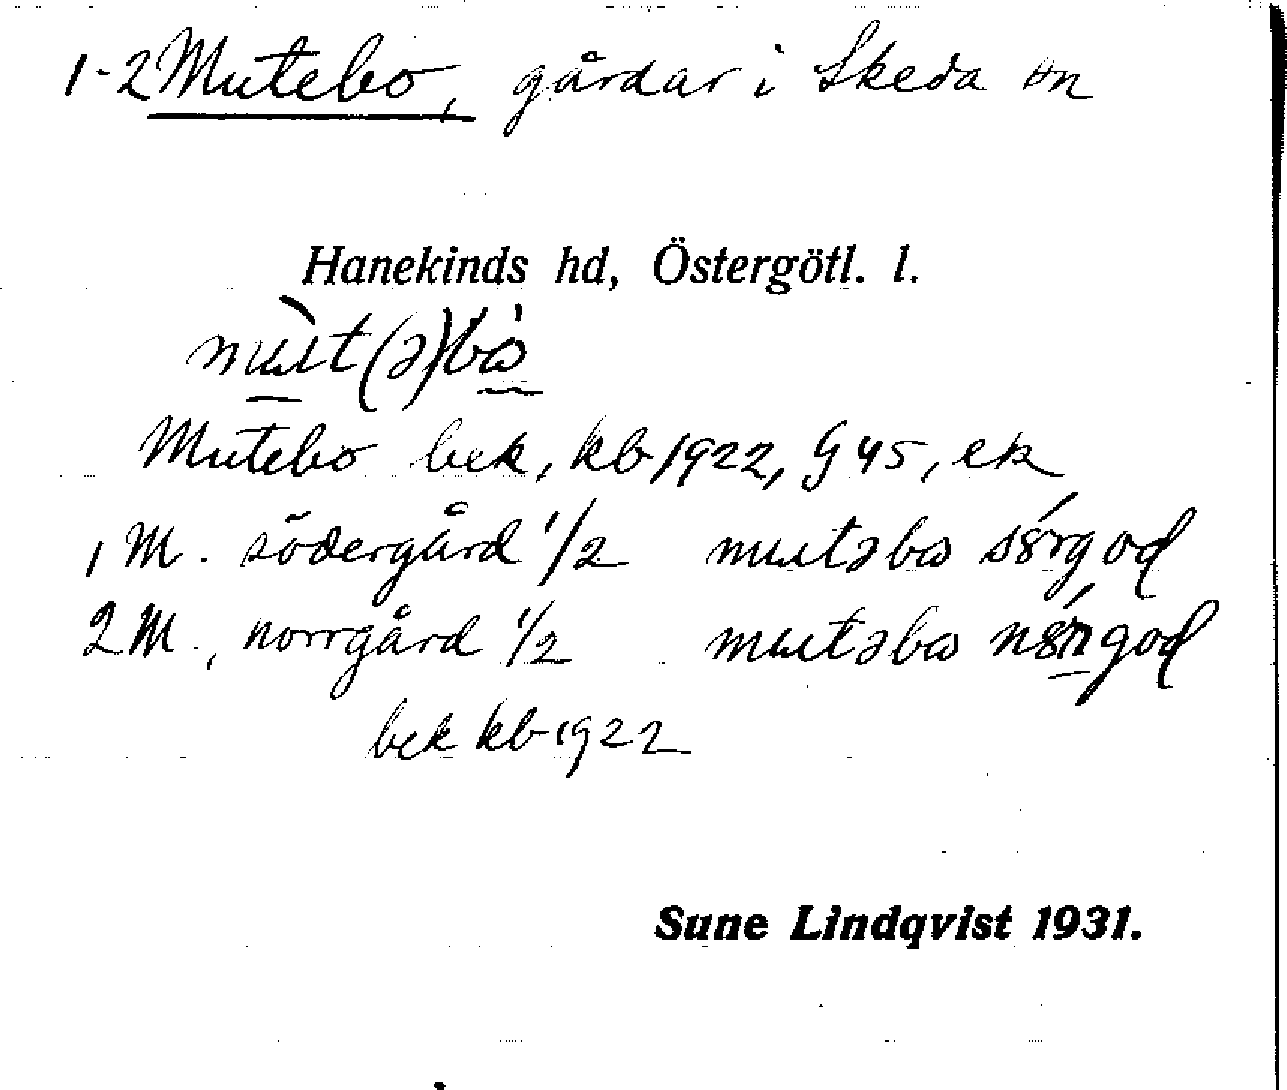 1-2 Mutebo, gårdar i Skeda sn
Hanekinds hd, Östergötl. l.
mut(ə)bω
Mutebo bek, kb 1922, G 45, ek
1 M. södergård 1/2 mutəbω
2 M., norrgård 1/2 mutəbω
bek kb 1922
Sune Lindqvist 1931.